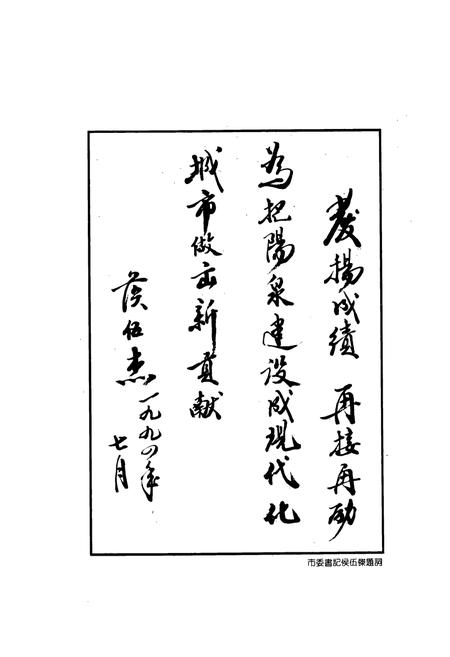 發揚成績 再接再励
為把陽泉建设成現代化
城市做出新貢献
侯伍杰一九九四年
七月
市委書記侯伍傑題詞